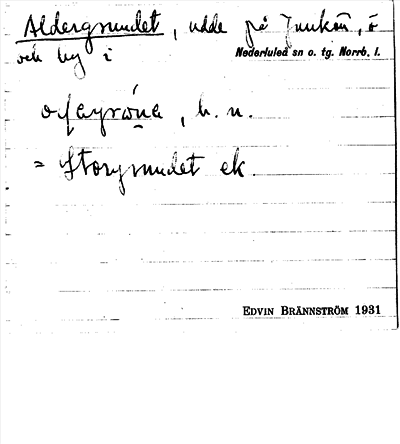 Aldergrundet, udde på Junkön, ö
och by i Nederluleå sn o. tg. Norrb. l.
b. n.
= Storgrundet ek.
EDVIN BRÄNNSTRÖM 1931